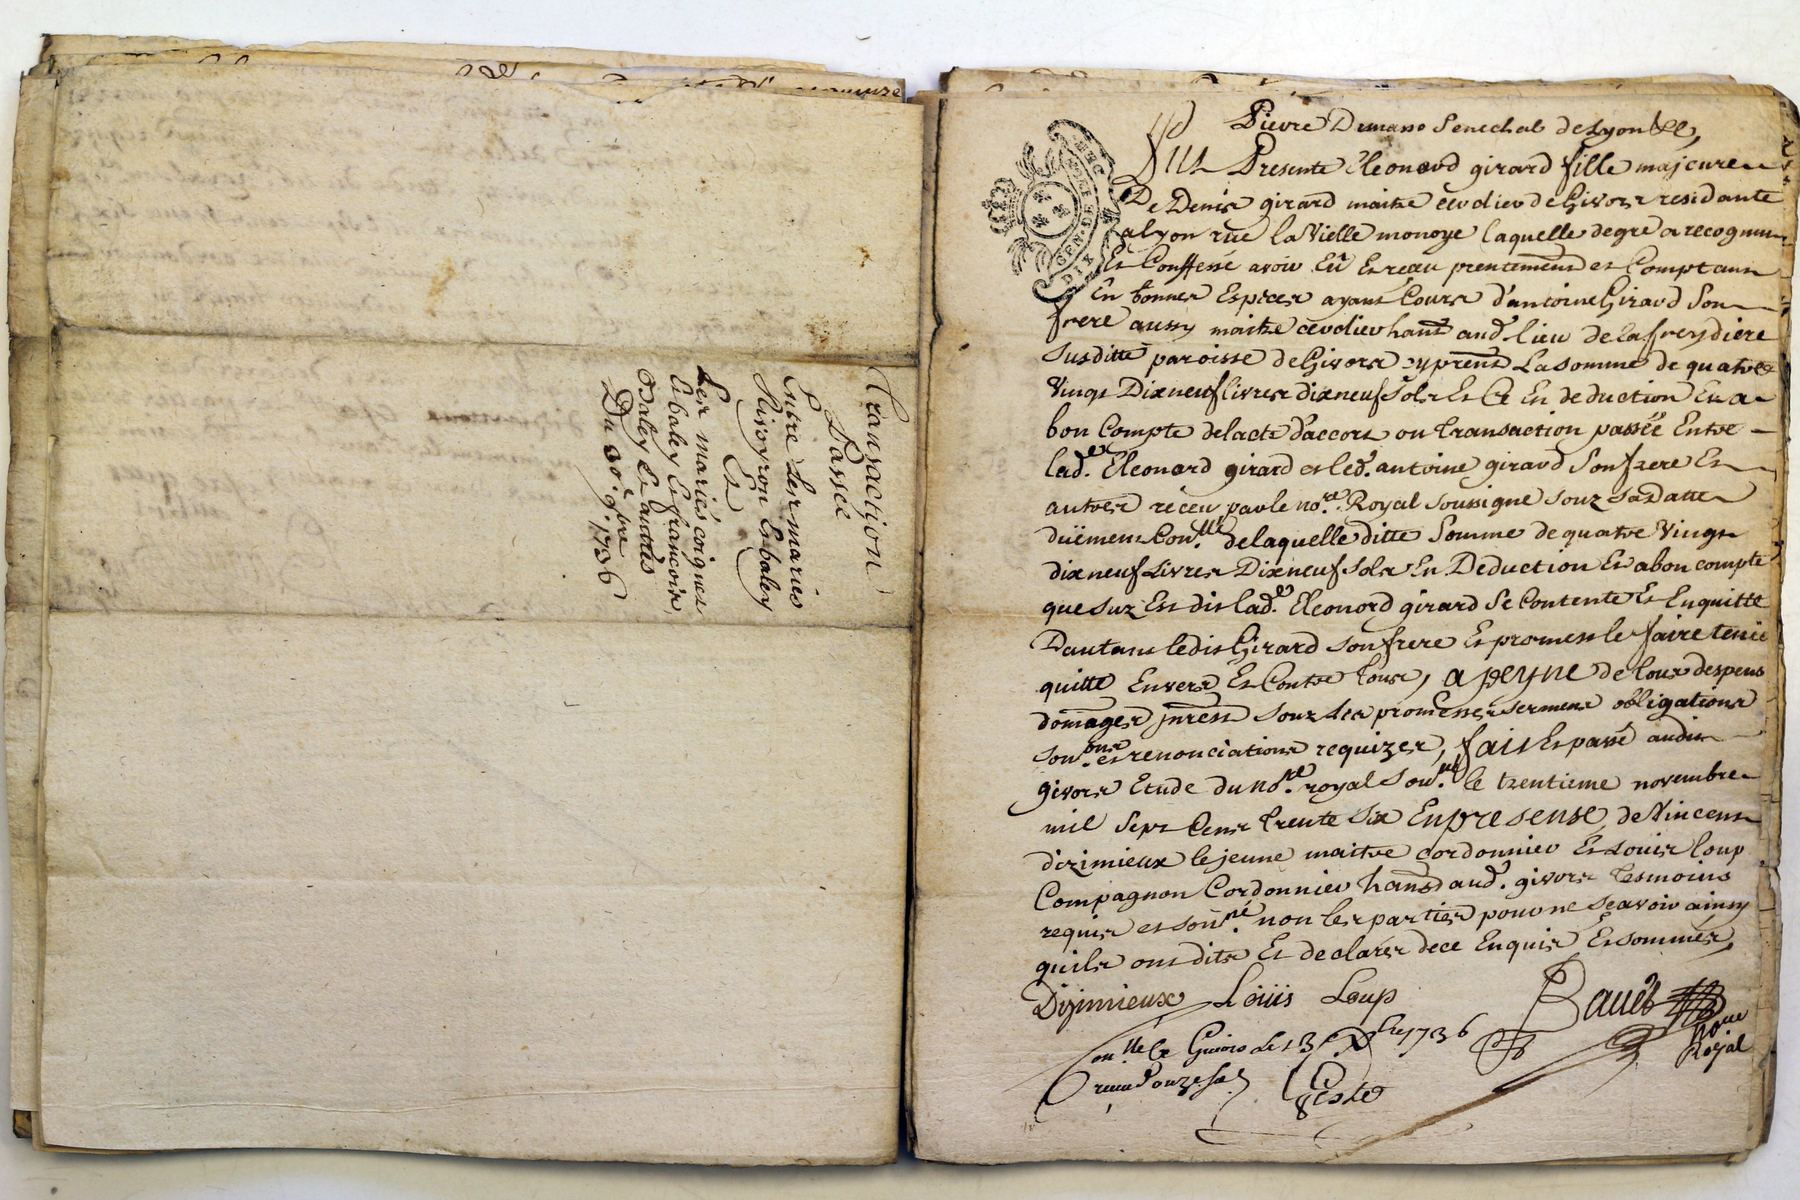 Transaction
Passée
Entre Les mariés
Et
Les mariés coignet
Et francois
Et autres
Du 30.e 9.bre 1736
Pierre Dumas Senechal de Lyon
Fut Presente Eleonord girard fille majeure
De Denis girard maitre cordier de Givors residante
a lyon rue la Vielle monoye laquelle de gre a recognu
Et Conffessé avoir Eû Et reçeu presentement et Comptant
En bonnes Especes ayant Cours d'antoine Girard Son
frere aussy maitre cordier hant aud. lieu de la freydiere
susditte paroisse de Givors cy prent La somme de quatre
vingt Dixneuf livres dixneuf sols Et Ce En deduction Et a
bon Compte de lacte d'accort ou transaction passée Entre
lad.e Eleonard girard et led. antoine girard Son frere Et
autres reçeu par le no.re Royal soussigné souz sa datte
düement Con.llé de laquelle ditte Somme de quatre Vingt
dixneuf Livres Dixneuf sols En Deduction Et a bon compte
que suz Est dit lad.e Eleonord girard Se Contente Et En quitte
Dautant ledit Girard son frere Et promet le faire tenir
quitte Envers Et Contre tous, a peyne de tous despens
domages jnrest souz les promesses serment obligations
soub.ons et renonciations requizes, fait Et passé audit
givors Etude du no.re royal sou.né le trentieme novembre
mil Sept Cent trente six En presense de Vincent
dizimieux le jeune maitre cordonnier Et Louis loup
Compagnon Cordonnier hants aud. givors tesmoins
requis et sou.né non les parties pour ne scavoir ainsy
quils ont dits Et declarés de ce Enquis Et sommés,
Dizimieux Loüis Loup
no.re
Royal
Con.llé a Givors le 13 1736
receu douze sols